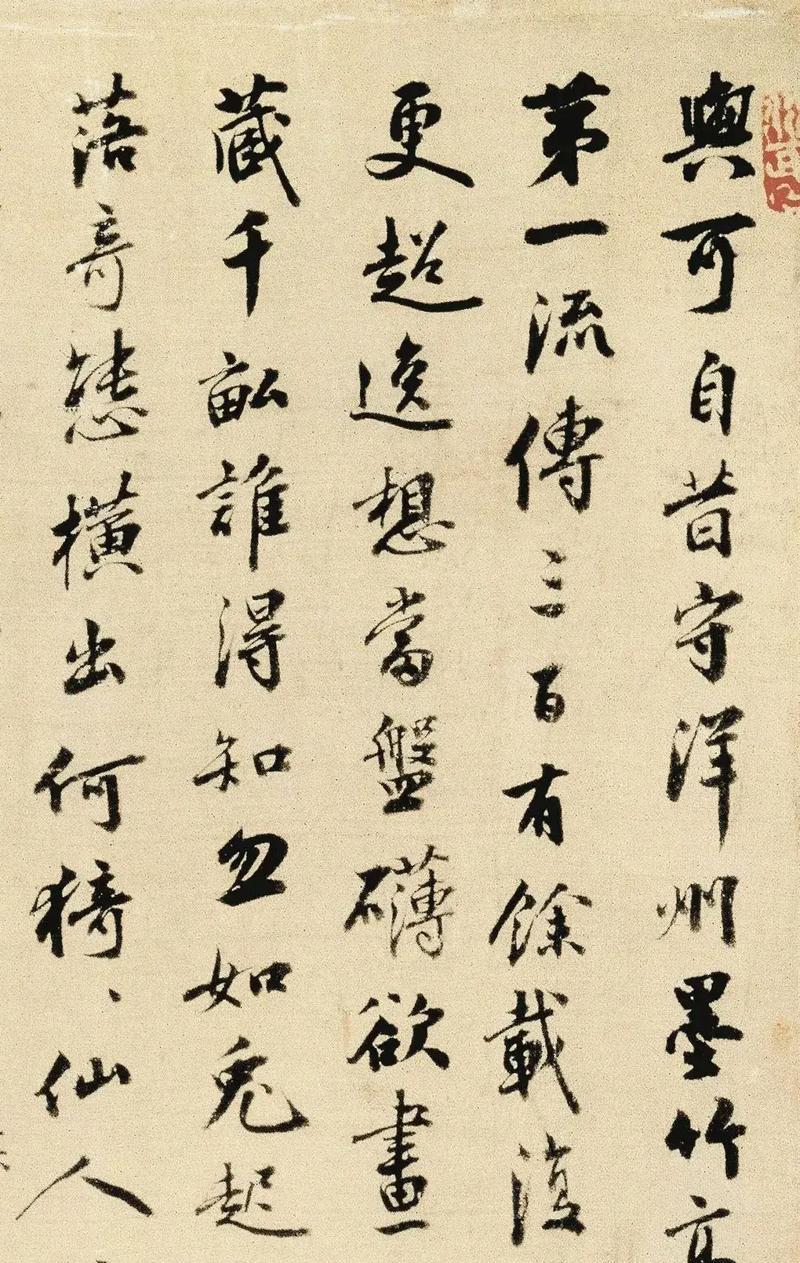 與可自昔守洋州墨竹高
第一流傳三百有餘載復
更超逸想當盤礴欲畫
藏千畝誰得知忽如兔起
落奇態橫出何猗、仙人